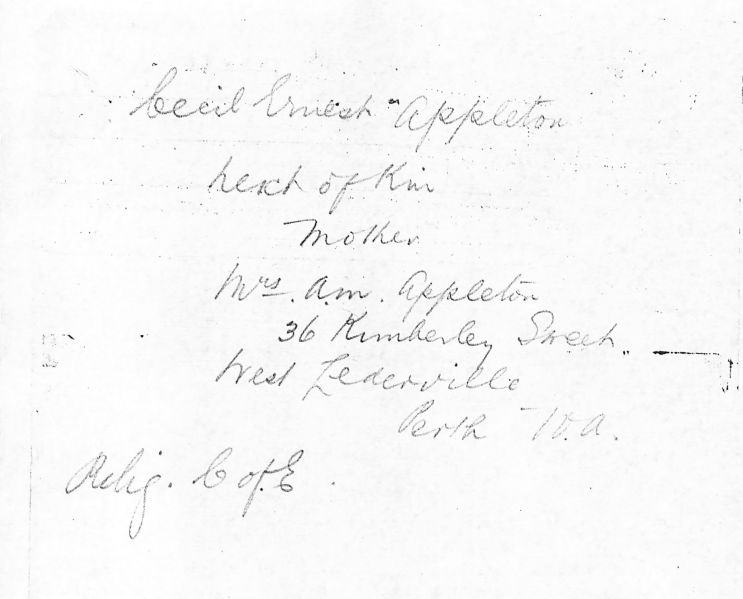 Cecil Ernest Appleton
next of Kin
Mother
Mrs. A.M. Appleton
36 Kimberley Street
West Lederville
Perth W.A.
Relig. C of E.